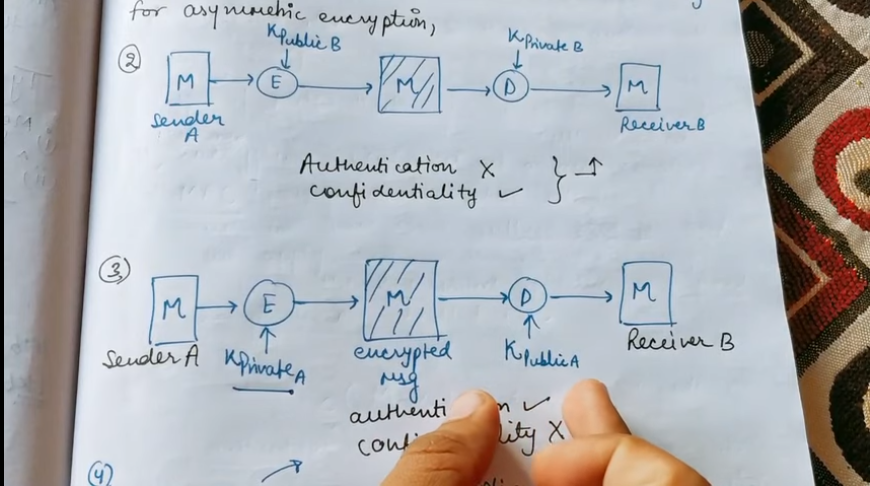 for asymmetric encryption,
②
K Public B
K Private B
M
E
M
D
M
Sender A
Receiver B
Authentication X
confidentiality ✓
③
M
E
M
D
M
Sender A
K Private A
encrypted msg
K Public A
Receiver B
④